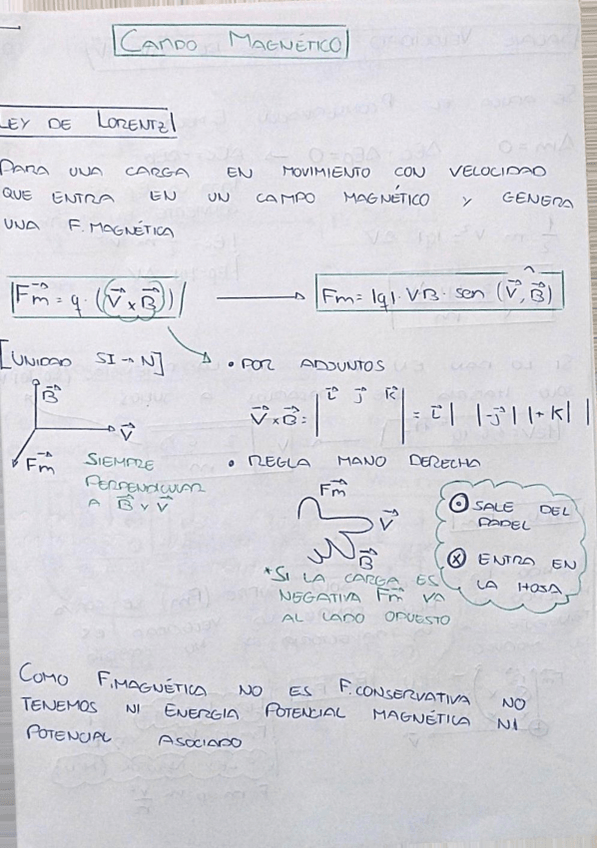 CAMPO MAGNÉTICO
LEY DE LORENTZ
PARA UNA CARGA EN MOVIMIENTO CON VELOCIDAD
QUE ENTRA EN UN CAMPO MAGNÉTICO Y GENERA
UNA F. MAGNÉTICA
F⃗m = q · (V⃗ x B⃗) → Fm = |q| · V B · sen (V⃗, B⃗)
[UNIDAD SI → N] • POR ADJUNTOS
B⃗
V⃗
F⃗m
V⃗ x B⃗ = | i⃗ j⃗ k⃗ | = i⃗ | | - j⃗ | | + k | |
SIEMPRE
PERPENDICULAR
A B⃗ Y V⃗
• REGLA MANO DERECHA
F⃗m
V⃗
B⃗
⊙ SALE DEL
PAPEL
⊗ ENTRA EN
LA HOJA
*SI LA CARGA ES
NEGATIVA F⃗m VA
AL LADO OPUESTO
COMO F.MAGNÉTICA NO ES F.CONSERVATIVA NO
TENEMOS NI ENERGIA POTENCIAL MAGNÉTICA NI
POTENCIAL ASOCIADO